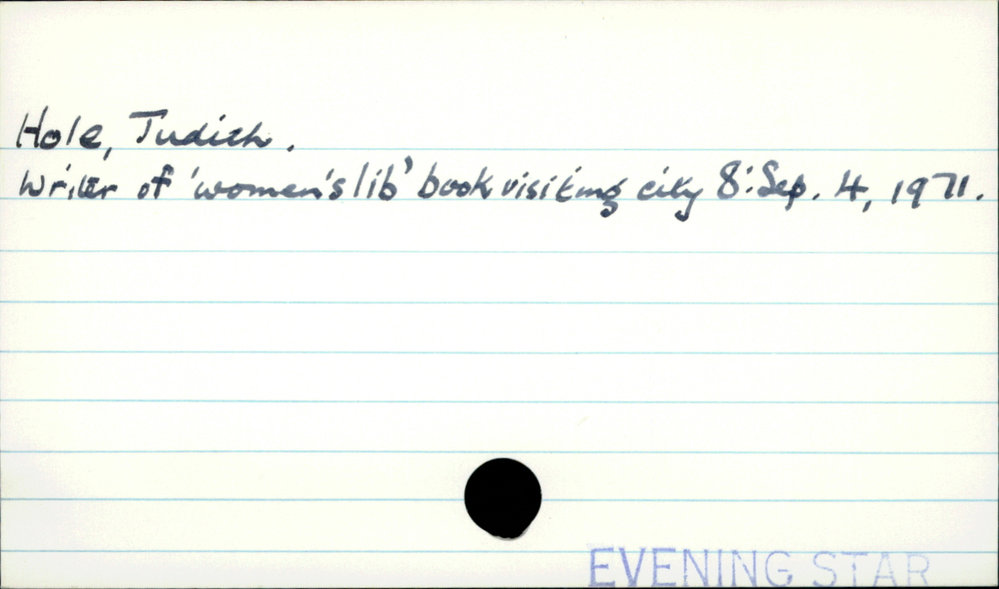 Hole, Judith.
Writer of 'women's lib' book visiting city 8: Sep. 4, 1971.
EVENING STAR